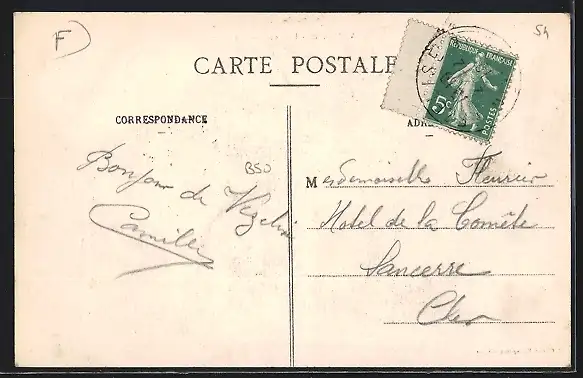 F
54
CARTE POSTALE
REPUBLIQUE FRANÇAISE
5c
POSTES
CORRESPONDANCE
ADRE
BSO
Bonjour de Vézelin
Camille
Mesdemoiselle Fleurier
Hotel de la Comète
Sancerre
Cher